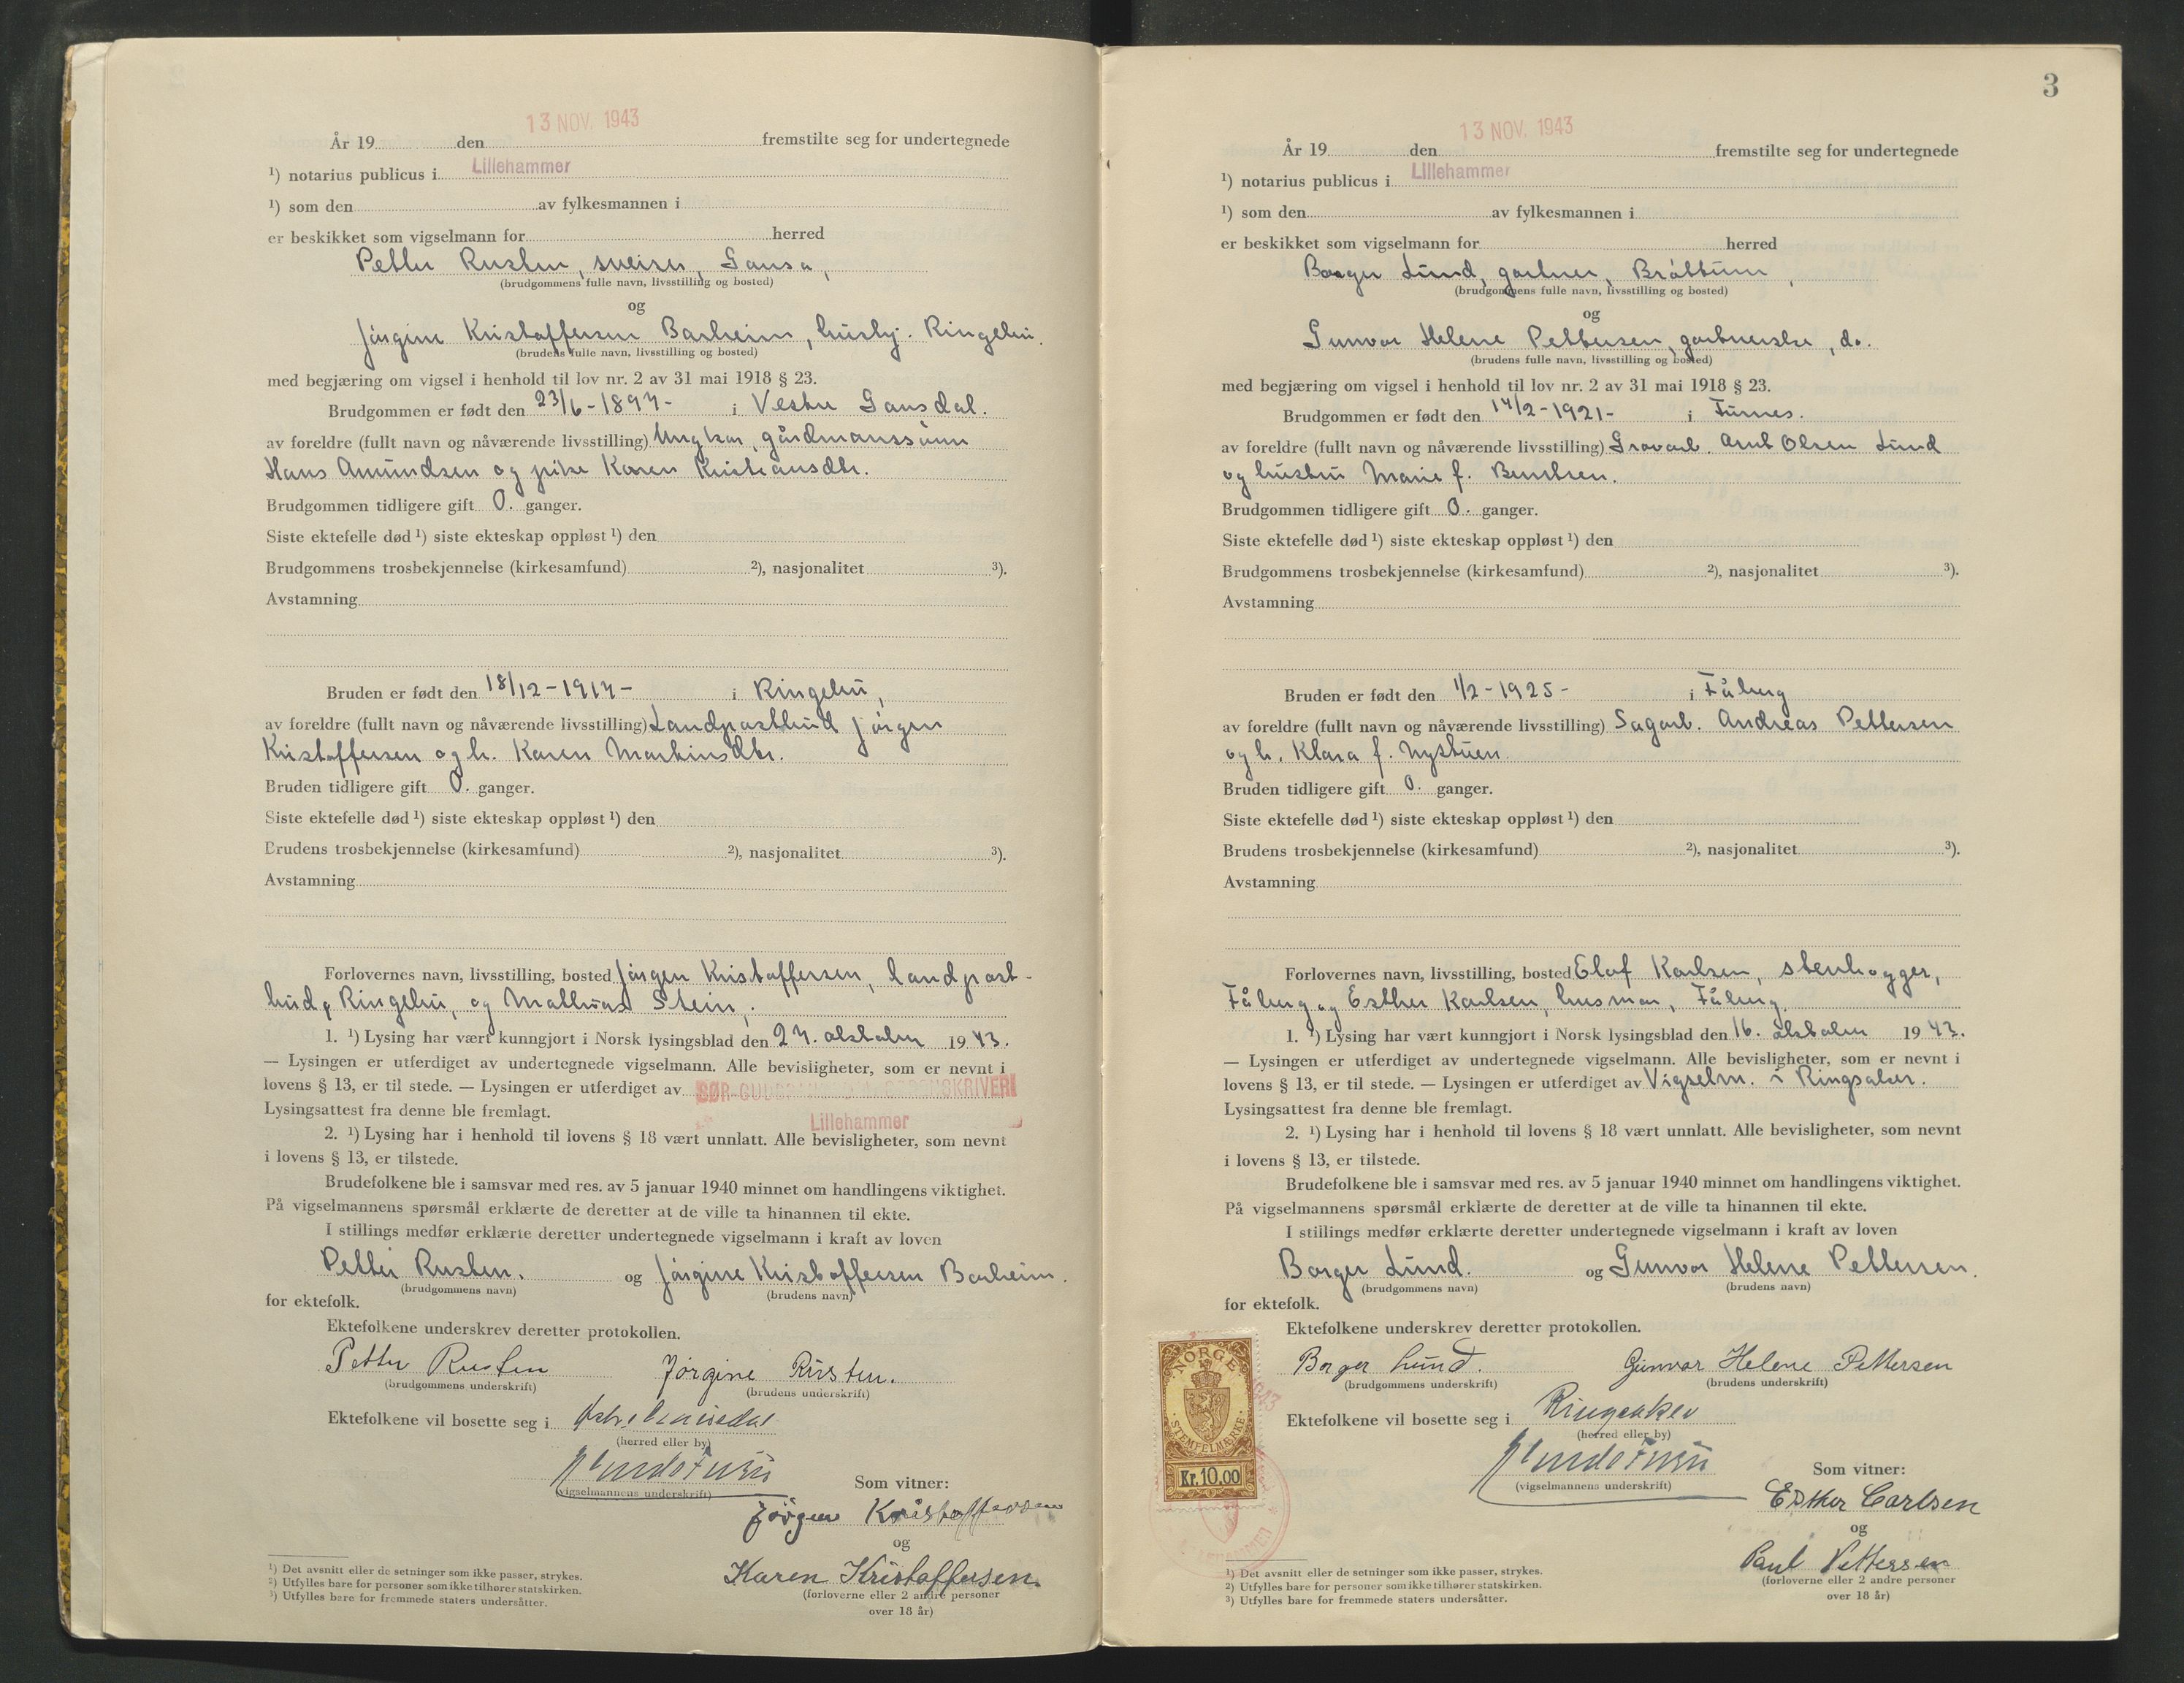 13 NOV. 1943
År 19 den fremstilte seg for undertegnede
¹) notarius publicus i Lillehammer
¹) som den av fylkesmannen i
er beskikket som vigselmann for herred
Petter Rusten, sveiser, Gausa,
(brudgommens fulle navn, livsstilling og bosted)
og
Jørgine Kristoffersen Barheim, husbj. Ringebu.
(brudens fulle navn, livsstilling og bosted)
med begjæring om vigsel i henhold til lov nr. 2 av 31 mai 1918 § 23.
Brudgommen er født den 23/6-1897- i Vestre Gausdal.
av foreldre (fullt navn og nåværende livsstilling) Ungkar, gårdmannssønn
Hans Amundsen og pike Karen Kristiansdtr.
Brudgommen tidligere gift 0. ganger.
Siste ektefelle død ¹) siste ekteskap oppløst ¹) den
Brudgommens trosbekjennelse (kirkesamfund) ²), nasjonalitet ³).
Avstamning
Bruden er født den 18/12-1917- i Ringebu,
av foreldre (fullt navn og nåværende livsstilling) Landpostbud Jørgen
Kristoffersen og h. Karen Martinsdtr.
Bruden tidligere gift 0. ganger.
Siste ektefelle død ¹) siste ekteskap oppløst ¹) den
Brudens trosbekjennelse (kirkesamfund) ²), nasjonalitet ³).
Avstamning
Forlovernes navn, livsstilling, bosted Jørgen Kristoffersen, landpost-
bud, Ringebu, og Mathias Stein,.
1. ¹) Lysing har vært kunngjort i Norsk lysingsblad den 27. oktober 1943.
— Lysingen er utferdiget av undertegnede vigselmann. Alle bevisligheter, som er nevnt i
lovens § 13, er til stede. — Lysingen er utferdiget av SØR-GUDBRANDSDAL SORENSKRIVERI
Lysingsattest fra denne ble fremlagt. Lillehammer
2. ¹) Lysing har i henhold til lovens § 18 vært unnlatt. Alle bevisligheter, som nevnt
i lovens § 13, er tilstede.
Brudefolkene ble i samsvar med res. av 5 januar 1940 minnet om handlingens viktighet.
På vigselmannens spørsmål erklærte de deretter at de ville ta hinannen til ekte.
I stillings medfør erklærte deretter undertegnede vigselmann i kraft av loven
Petter Rusten. og Jørgine Kristoffersen Barheim.
(brudgommens navn) (brudens navn)
for ektefolk.
Ektefolkene underskrev deretter protokollen.
Petter Rusten Jørgine Rusten.
(brudgommens underskrift) (brudens underskrift)
Ektefolkene vil bosette seg i
(herred eller by)
(vigselmannens underskrift)
Som vitner:
Jörgen Kristoffersen
og
Karen Kristoffersen.
(forloverne eller 2 andre personer
over 18 år)
¹) Det avsnitt eller de setninger som ikke passer, strykes.
²) Utfylles bare for personer som ikke tilhører statskirken.
³) Utfylles bare for fremmede staters undersåtter.
3
13 NOV. 1943
År 19 den fremstilte seg for undertegnede
¹) notarius publicus i Lillehammer
¹) som den av fylkesmannen i
er beskikket som vigselmann for herred
Borger Lund, gartner, Bråttum,
(brudgommens fulle navn, livsstilling og bosted)
og
Gunvor Helene Pettersen, gartnerske, do.
(brudens fulle navn, livsstilling og bosted)
med begjæring om vigsel i henhold til lov nr. 2 av 31 mai 1918 § 23.
Brudgommen er født den 14/2-1921- i Furnes.
av foreldre (fullt navn og nåværende livsstilling) Gravarb. Arnt Olsen Lund
og hustru Marie f. Berntsen.
Brudgommen tidligere gift 0. ganger.
Siste ektefelle død ¹) siste ekteskap oppløst ¹) den
Brudgommens trosbekjennelse (kirkesamfund) ²), nasjonalitet ³).
Avstamning
Bruden er født den 1/2-1925- i Fåberg
av foreldre (fullt navn og nåværende livsstilling) Sagarb. Andreas Pettersen
og h. Klara f. Nystuen.
Bruden tidligere gift 0. ganger.
Siste ektefelle død ¹) siste ekteskap oppløst ¹) den
Brudens trosbekjennelse (kirkesamfund) ²), nasjonalitet ³).
Avstamning
Forlovernes navn, livsstilling, bosted Elof Karlsen, stenhogger,
Fåberg og Esther Karlsen, husmor, Fåberg.
1. ¹) Lysing har vært kunngjort i Norsk lysingsblad den 16. oktober 1943.
— Lysingen er utferdiget av undertegnede vigselmann. Alle bevisligheter, som er nevnt i
lovens § 13, er til stede. — Lysingen er utferdiget av Vigselm. i Ringsaker.
Lysingsattest fra denne ble fremlagt.
2. ¹) Lysing har i henhold til lovens § 18 vært unnlatt. Alle bevisligheter, som nevnt
i lovens § 13, er tilstede.
Brudefolkene ble i samsvar med res. av 5 januar 1940 minnet om handlingens viktighet.
På vigselmannens spørsmål erklærte de deretter at de ville ta hinannen til ekte.
I stillings medfør erklærte deretter undertegnede vigselmann i kraft av loven
Borger Lund. og Gunvor Helene Pettersen.
(brudgommens navn) (brudens navn)
for ektefolk.
Ektefolkene underskrev deretter protokollen.
Borger Lund. Gunvor Helene Pettersen
(brudgommens underskrift) (brudens underskrift)
Ektefolkene vil bosette seg i Ringsaker
(herred eller by)
(vigselmannens underskrift)
Som vitner:
Esther Carlsen
og
Paul Pettersen
(forloverne eller 2 andre personer
over 18 år)
NORGE
STEMPELMÆRKE
Kr. 10.00
¹) Det avsnitt eller de setninger som ikke passer, strykes.
²) Utfylles bare for personer som ikke tilhører statskirken.
³) Utfylles bare for fremmede staters undersåtter.